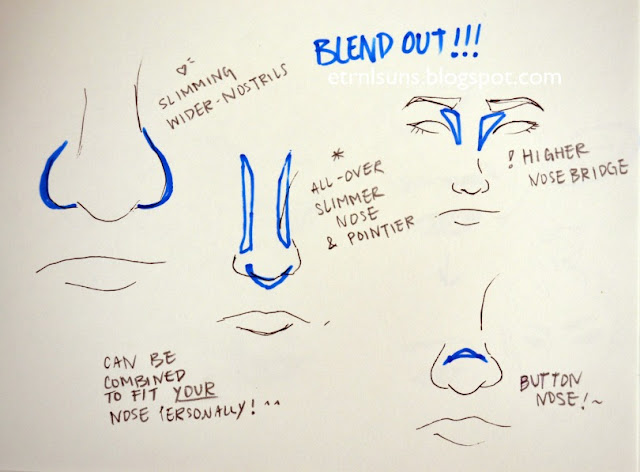 BLEND OUT!!!
etrnlsuns.blogspot.com
SLIMMING
WIDER-NOSTRILS
* ALL-OVER
SLIMMER
NOSE
& POINTIER
! HIGHER
NOSE BRIDGE
CAN BE
COMBINED
TO FIT YOUR
NOSE PERSONALLY! ^^
BUTTON
NOSE! ~